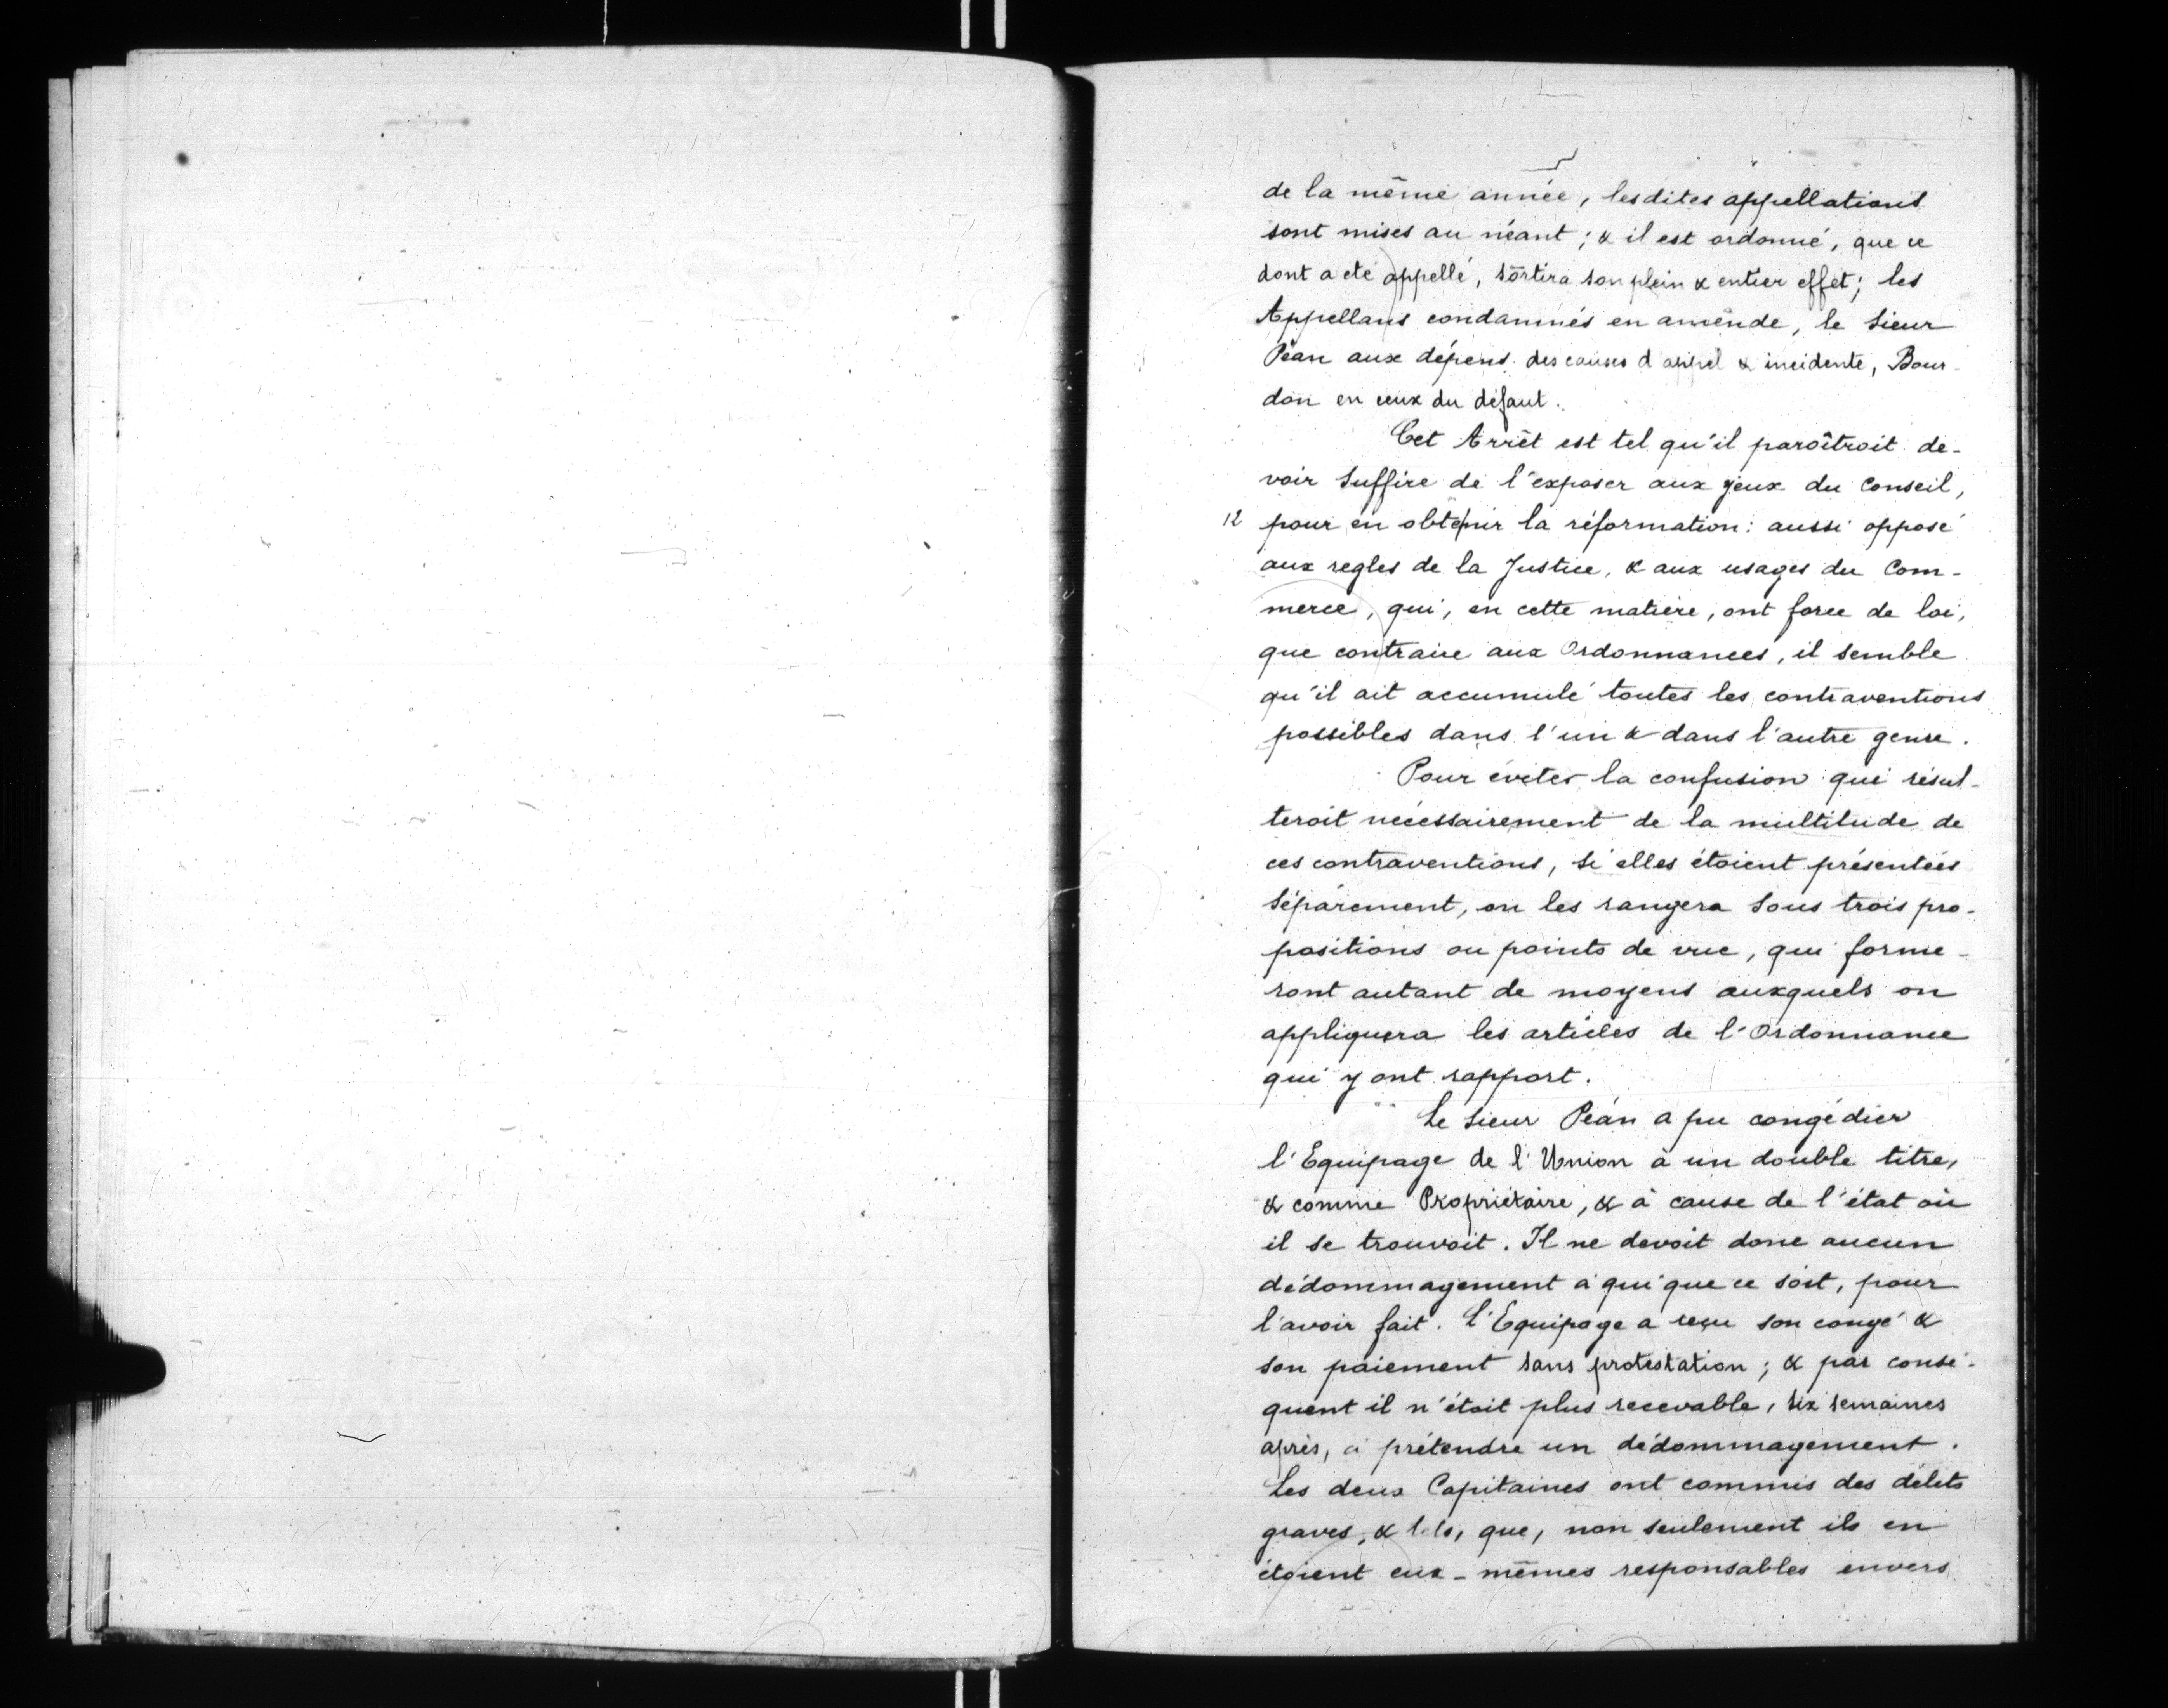 de la même année, lesdites appellations
sont mises au néant; & il est ordonné, que ce
dont a eté appellé, sortira son plein & entier effet; les
Appellans condamnés en amende, le Sieur
Péan aux dépens des causes d'appel & incidente, Bour-
don en ceux du défaut.
Cet Arrêt est tel qu'il paroîtroit de-
voir suffire de l'exposer aux yeux du Conseil,
12 pour en obtenir la réformation: aussi opposé
aux regles de la Justice, & aux usages du Com-
merce, qui, en cette matière, ont force de loi,
que contraire aux Ordonnances, il semble
qu'il ait accumulé toutes les contraventions
possibles dans l'un & dans l'autre genre.
Pour éviter la confusion qui résul-
teroit nécessairement de la multitude de
ces contraventions, si elles étoient présentées
séparément, on les rangera sous trois pro-
positions ou points de vue, qui forme-
ront autant de moyens auxquels on
appliquera les articles de l'Ordonnance
qui y ont rapport.
Le Sieur Péan a pu congédier
l'Equipage de l'Union à un double titre,
& comme Propriétaire, & à cause de l'état où
il se trouvoit. Il ne devoit donc aucun
dédommagement à qui que ce soit, pour
l'avoir fait. L'Equipage a reçu son congé &
son paiement sans protestation; & par consé-
quent il n'étoit plus recevable, six semaines
après, à prétendre un dédommagement.
Les deux Capitaines ont commis des délits
graves, & tels, que, non seulement ils en
étoient eux-mêmes responsables envers